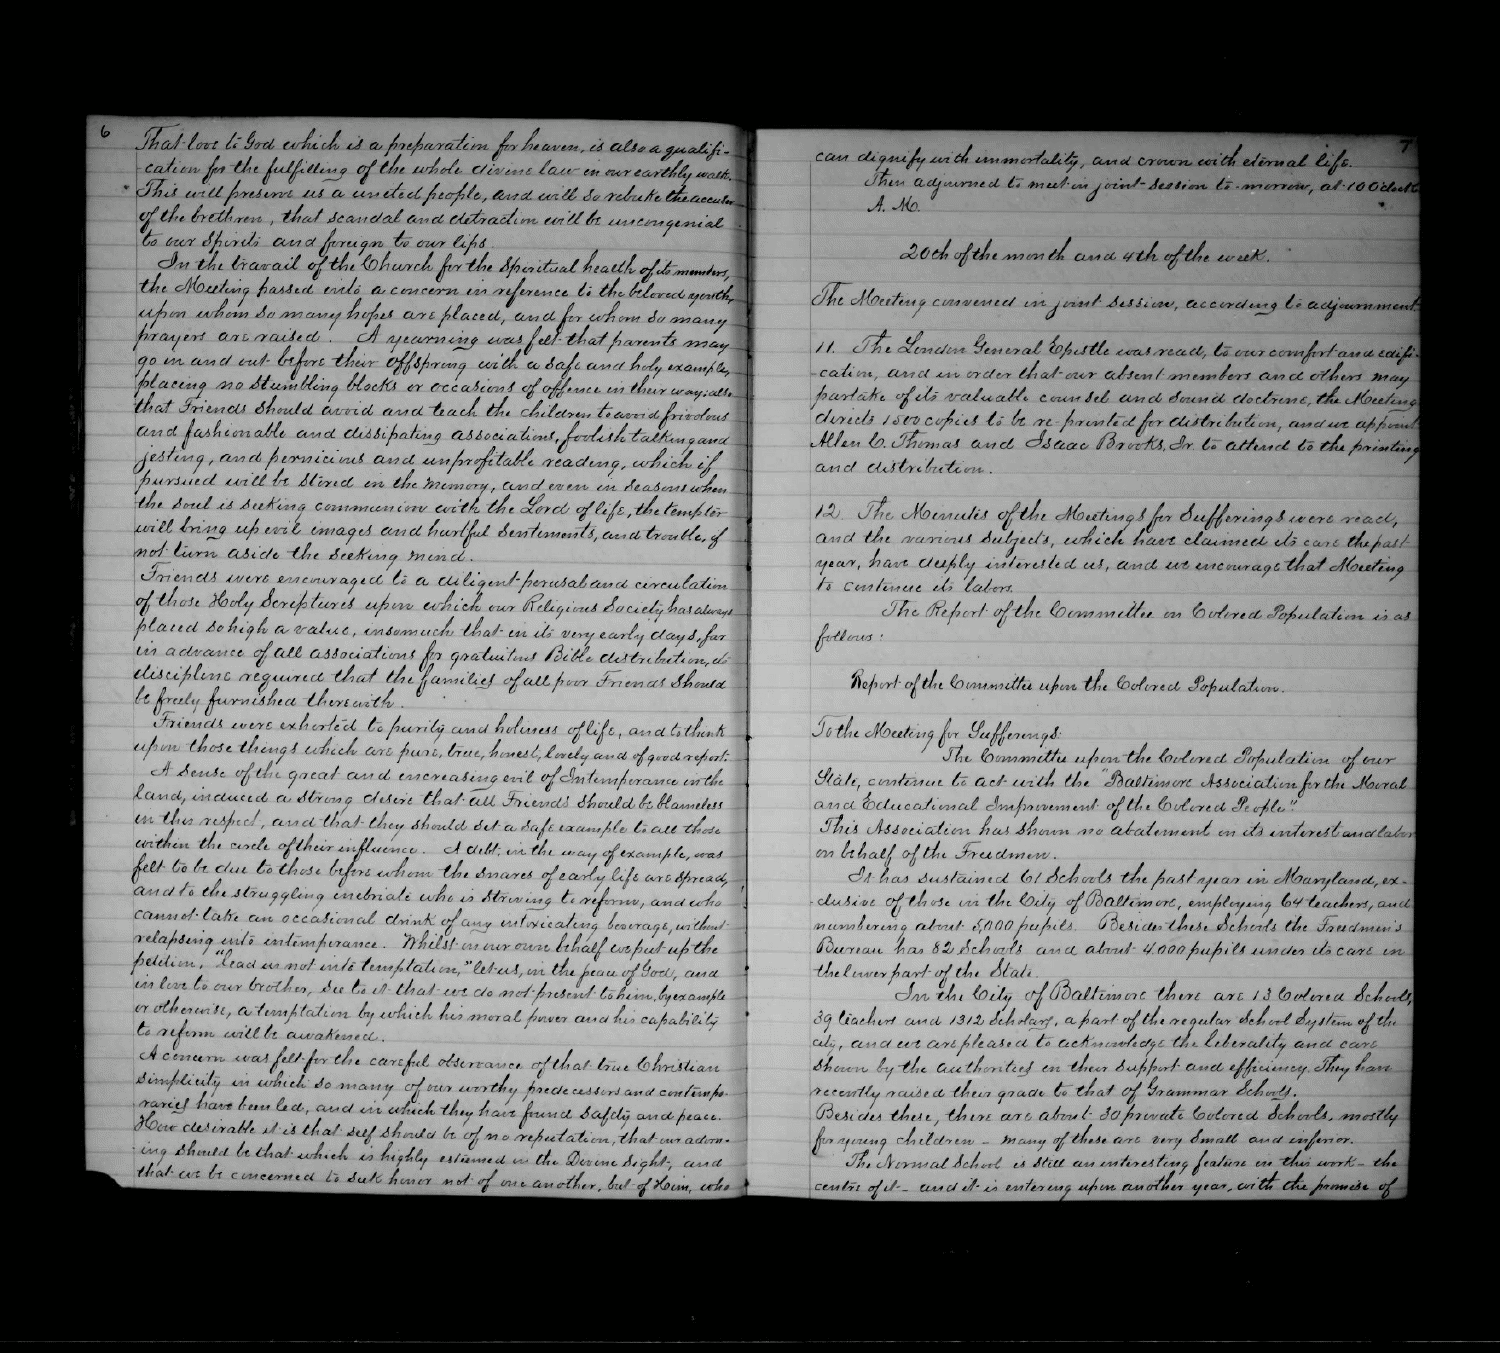 6
That love to God which is a preparation for heaven, is also a qualifi-
-cation for the fulfilling of the whole divine law in our earthly walk.
This will preserve us a united people, and will so rebuke the accuser
of the brethren, that scandal and detraction will be uncongenial
to our Spirits and foreign to our lips.
In the travail of the Church for the Spiritual health of its members,
the Meeting passed into a concern in reference to the beloved youth,
upon whom so many hopes are placed, and for whom so many
prayers are raised. A yearning was felt that parents may
go in and out before their offspring with a safe and holy example,
placing no stumbling blocks or occasions of offence in their way; also
that Friends should avoid and teach the children to avoid frivolous
and fashionable and dissipating associations, foolish talking and
jesting, and pernicious and unprofitable reading, which if
pursued will be stored in the memory, and even in seasons when
the soul is seeking communion with the Lord of life, the tempter
will bring up evil images and hurtful sentiments, and trouble, if
not turn aside the seeking mind.
Friends were encouraged to a diligent perusal and circulation
of those Holy Scriptures upon which our Religious Society has always
placed so high a value, insomuch that in its very early days, far
in advance of all associations for gratuitous Bible distribution, its
discipline required that the families of all poor Friends should
be freely furnished therewith.
Friends were exhorted to purity and holiness of life, and to think
upon those things which are pure, true, honest, lovely and of good report.
A sense of the great and increasing evil of Intemperance in the
land, induced a strong desire that all Friends should be blameless
in this respect, and that they should set a safe example to all those
within the circle of their influence. A debt, in the way of example, was
felt to be due to those before whom the snares of early life are spread,
and to the struggling inebriate who is striving to reform, and who
cannot take an occasional drink of any intoxicating beverage, without
relapsing into intemperance. Whilst in our own behalf we put up the
petition, "lead us not into temptation," let us, in the peace of God, and
in love to our brother, see to it that we do not present to him, by example
or otherwise, a temptation by which his moral power and his capability
to reform will be awakened.
A concern was felt for the careful observance of that true Christian
simplicity in which so many of our worthy predecessors and contempo-
raries have been led, and in which they have found safety and peace.
How desirable it is that self should be of no reputation, that our adorn-
ing should be that which is highly esteemed in the Divine Sight, and
that we be concerned to seek honor not of one another, but of Him, who
7
can dignify with immortality, and crown with eternal life.
Then adjourned to meet in joint session to-morrow, at 10 O'clock
A. M.
20th of the month and 4th of the week.
The Meeting convened in joint session, according to adjournment.
11. The London General Epistle was read, to our comfort and edifi-
-cation, and in order that our absent members and others may
partake of its valuable counsel and sound doctrine, the Meeting
directs 1500 copies to be re-printed for distribution, and we appoint
Allen C. Thomas and Isaac Brooks, Jr. to attend to the printing
and distribution.
12. The Minutes of the Meetings for Sufferings were read,
and the various subjects, which have claimed its care the past
year, have deeply interested us, and we encourage that Meeting
to continue its labors.
The Report of the Committee on Colored Population is as
follows:
Report of the Committee upon the Colored Population.
To the Meeting for Sufferings:
The Committee upon the Colored Population of our
State, continue to act with the "Baltimore Association for the Moral
and Educational Improvement of the Colored People".
This Association has shown no abatement in its interest and labor
on behalf of the Freedmen.
It has sustained 61 Schools the past year in Maryland, ex-
-clusive of those in the City of Baltimore, employing 64 teachers, and
numbering about 3,000 pupils. Besides these Schools the Freedmen's
Bureau has 82 Schools and about 4.000 pupils under its care in
the lower part of the State.
In the City of Baltimore there are 13 Colored Schools,
39 teachers and 1312 Scholars, a part of the regular School System of the
city, and we are pleased to acknowledge the liberality and care
shown by the authorities in their support and efficiency. They have
recently raised their grade to that of Grammar Schools.
Besides these, there are about 30 private Colored Schools, mostly
for young children - many of these are very small and inferior.
The Normal School is still an interesting feature in this work - the
centre of it - and it is entering upon another year, with the promise of